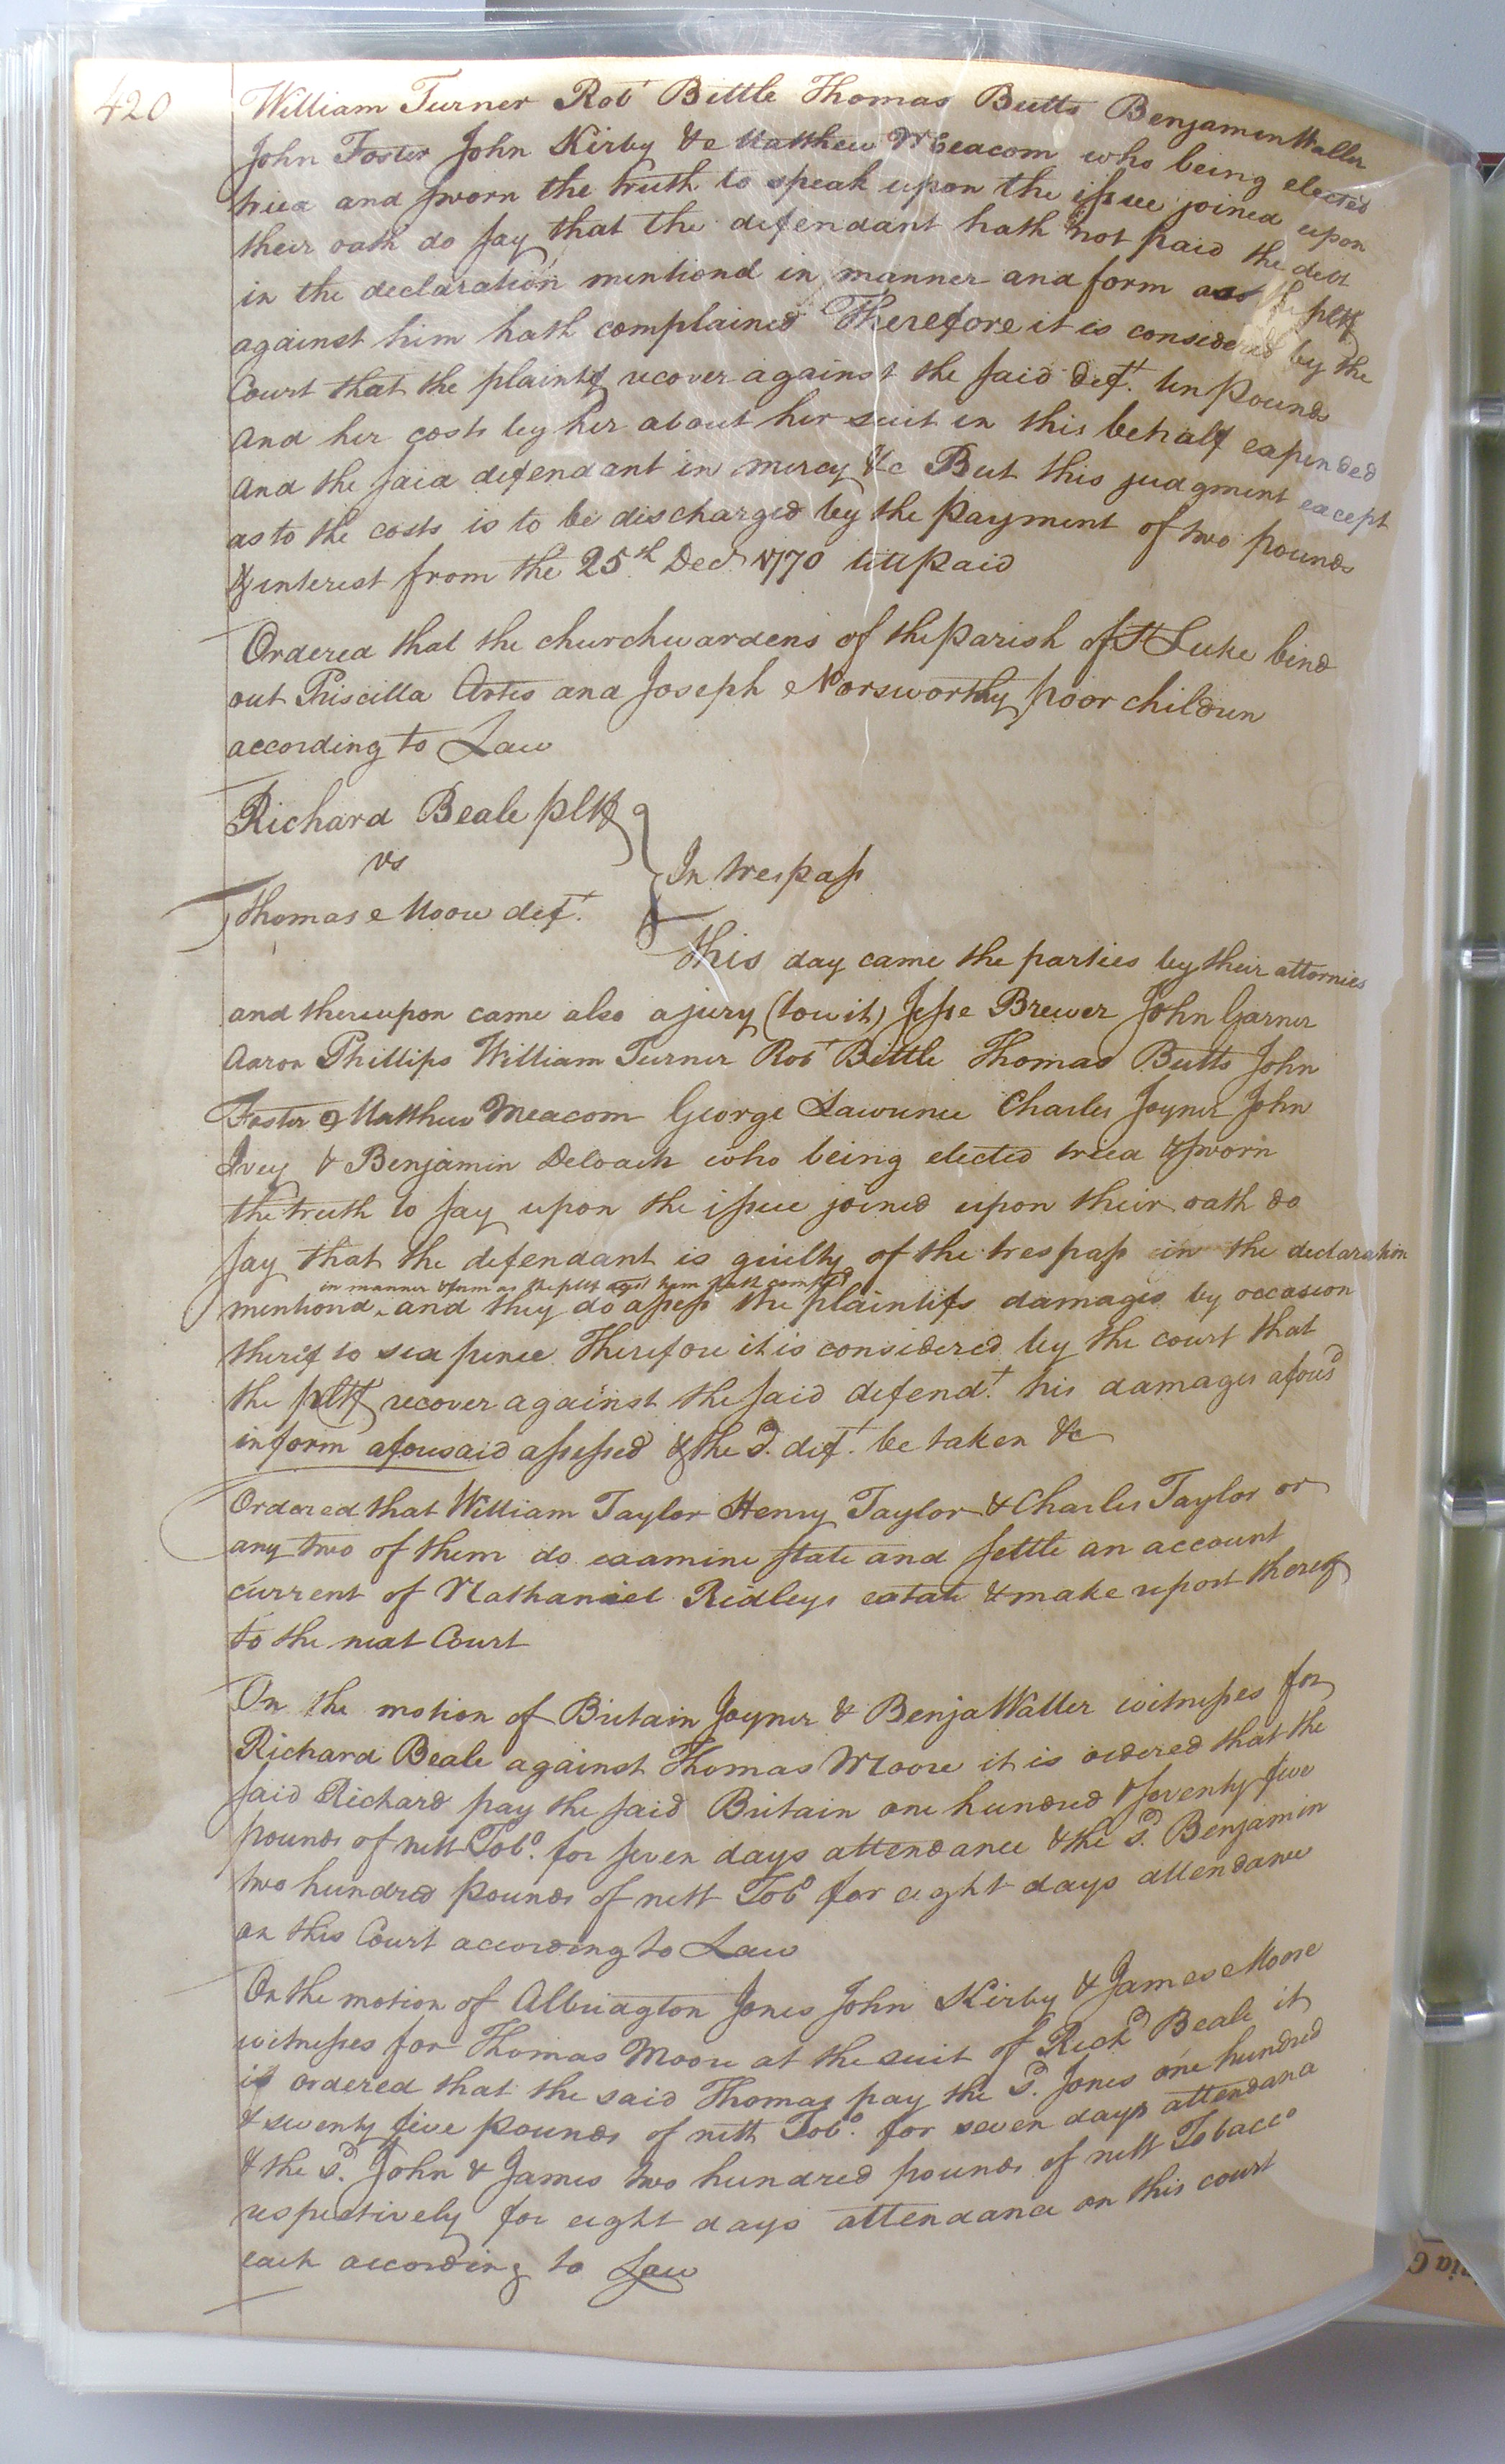 420
William Turner Robt Bittle Thomas Butts Benjamen Waller
John Foster John Kirby &c Matthew Meacom who being elected
tried and sworn the truth to speak upon the issue joined upon
their oath do say that the defendant hath not paid the debt
in the declaration mentiond in manner and form as the pltf
against him hath complained Therefore it is considered by the
Court that the plaintif recover against the said Deft. ten pounds
And her costs by her about her suit in this behalf expended
And the said defendant in mercy &c But this judgment except
as to the costs is to be discharged by the payment of two pounds
& interest from the 25th Decr 1770 till paid
Ordered that the churchwardens of the parish of St Luke bind
out Priscilla Artis and Joseph Norsworthy poor children
according to Law
Richard Beale pltf
vs
In trespass
Thomas Moore deft.
This day came the parties by their attornies
and thereupon came also a jury (to wit) Jesse Brewer John Garner
Aaron Phillips William Turner Robt Bittle Thomas Butts John
Foster Matthew Meacom George Lawrence Charles Joyner John
Ivey & Benjamin Deloach who being elected tried & sworn
the truth to say upon the issue joined upon their oath do
say that the defendant is guilty of the trespass in the declaration
in manner & form as the pltf agst him hath compld
mentiond and they do assess the plaintifs damages by occasion
thereof to six pence Therefore it is considered by the court that
the pltf recover against the said defendt. his damages aforesd
in form aforesaid assessed & the sd. deft. be taken &c
Ordered that William Taylor Henry Taylor & Charles Taylor or
any two of them do examine state and settle an account
current of Nathaniel Ridleys estate & make report thereof
to the next Court
On the motion of Britain Joyner & Benja Waller witnesses for
Richard Beale against Thomas Moore it is ordered that the
said Richard pay the said Britain one hundred & seventy five
pounds of nett Tobo. for seven days attendance & the sd. Benjamin
two hundred pounds of nett Tobo for eight days attendance
on this Court according to Law
On the motion of Albriagton Jones John Kirby & James Moore
witnesses for Thomas Moore at the suit of Richd Beale it
is ordered that the said Thomas pay the sd. Jones one hundred
& seventy five pounds of nett Tobo. for seven days attendance
& the sd. John & James two hundred pounds of nett Tobacco
respectively for eight days attendance on this court
each according to Law